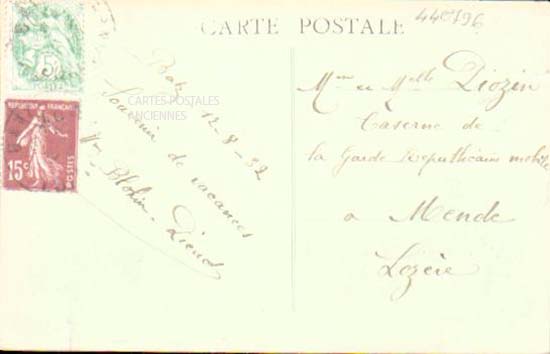 CARTE POSTALE
440196
5c
POSTES
REPUBLIQUE FRANÇAISE
15c
POSTES
CARTES POSTALES
ANCIENNES
Batz 12-8-32
Souvenir de vacances
Mme et Melle Diozin
Caserne de
la Garde Républicaine mobile
a Mende
Lozère